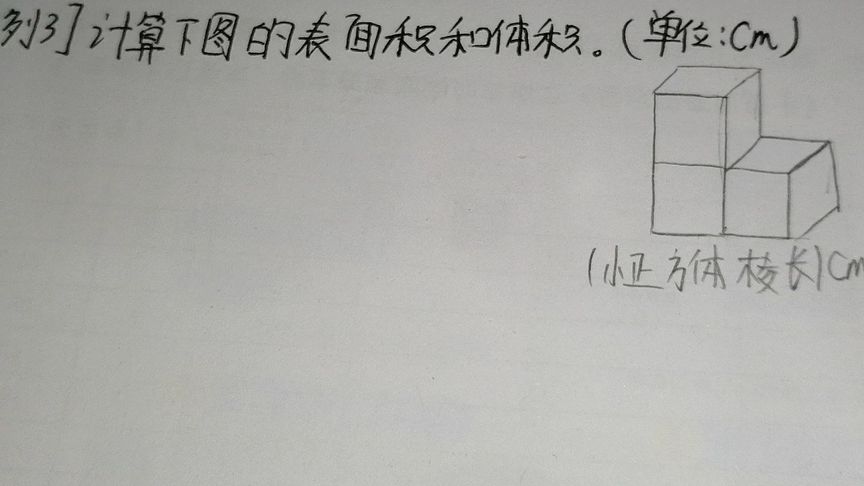 例3] 计算下图的表面积和体积。(单位:Cm)
(小正方体棱长1Cm